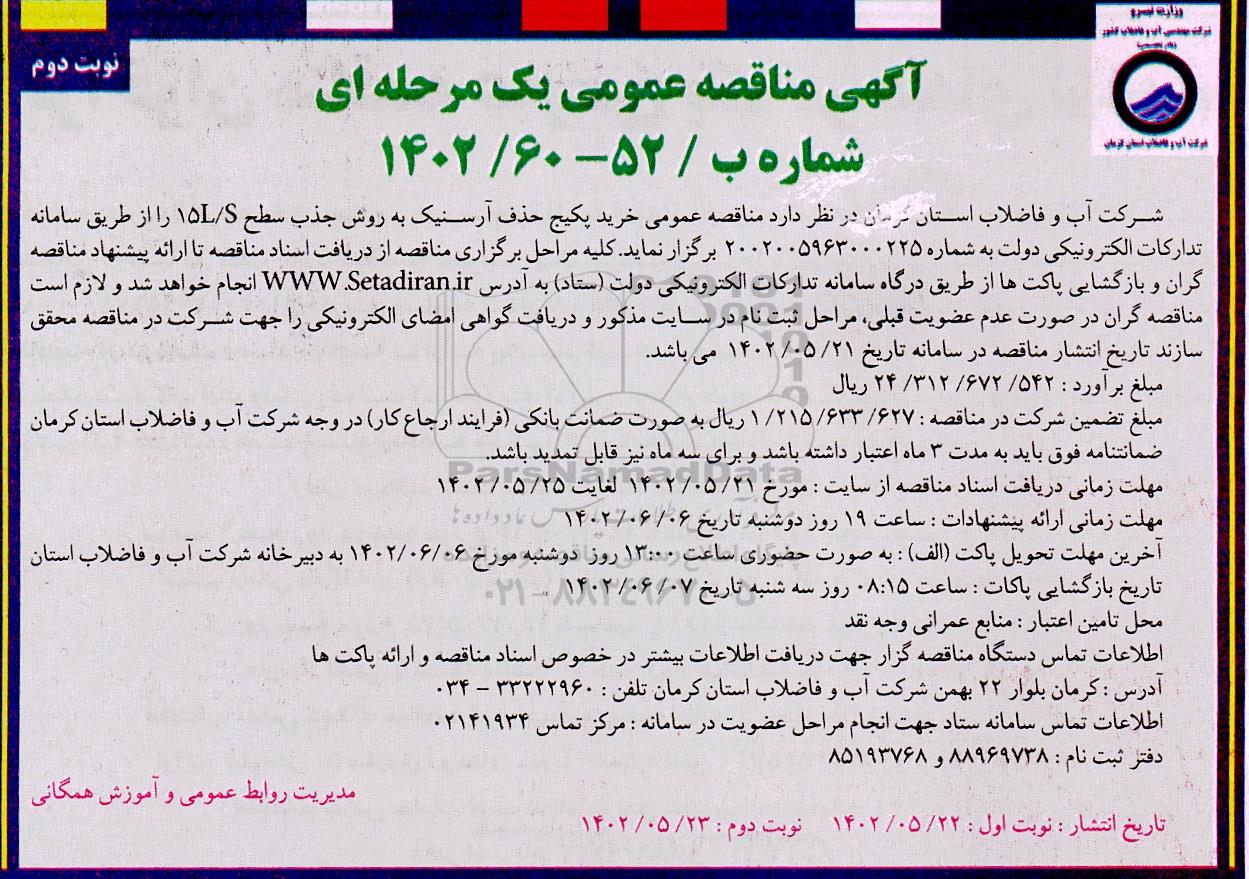 وزارت نیرو
شرکت مهندسی آب و فاضلاب کشور
شرکت آب و فاضلاب استان کرمان
نوبت دوم
آگهی مناقصه عمومی یک مرحله ای
شماره ب / ۵۲- ۶۰/ ۱۴۰۲
شرکت آب و فاضلاب استان کرمان در نظر دارد مناقصه عمومی خرید پکیج حذف آرسنیک به روش جذب سطح ۱۵L/S را از طریق سامانه
تدارکات الکترونیکی دولت به شماره ۲۰۰۲۰۰۵۹۶۳۰۰۰۲۲۵ برگزار نماید.کلیه مراحل برگزاری مناقصه از دریافت اسناد مناقصه تا ارائه پیشنهاد مناقصه
گران و بازگشایی پاکت ها از طریق درگاه سامانه تدارکات الکترونیکی دولت (ستاد) به آدرس WWW.Setadiran.ir انجام خواهد شد و لازم است
مناقصه گران در صورت عدم عضویت قبلی، مراحل ثبت نام در سایت مذکور و دریافت گواهی امضای الکترونیکی را جهت شرکت در مناقصه محقق
سازند تاریخ انتشار مناقصه در سامانه تاریخ ۲۱/ ۰۵/ ۱۴۰۲ می باشد.
مبلغ برآورد : ۵۴۲/ ۶۷۲/ ۳۱۲/ ۲۴ ریال
مبلغ تضمین شرکت در مناقصه : ۶۲۷/ ۶۳۳/ ۲۱۵/ ۱ ریال به صورت ضمانت بانکی (فرایند ارجاع کار) در وجه شرکت آب و فاضلاب استان کرمان
ضمانتنامه فوق باید به مدت ۳ ماه اعتبار داشته باشد و برای سه ماه نیز قابل تمدید باشد.
مهلت زمانی دریافت اسناد مناقصه از سایت : مورخ ۲۱/ ۰۵/ ۱۴۰۲ لغایت ۲۵/ ۰۵/ ۱۴۰۲
مهلت زمانی ارائه پیشنهادات : ساعت ۱۹ روز دوشنبه تاریخ ۰۶/ ۰۶/ ۱۴۰۲
آخرین مهلت تحویل پاکت (الف) : به صورت حضوری ساعت ۱۳:۰۰ روز دوشنبه مورخ ۱۴۰۲/۰۶/۰۶ به دبیرخانه شرکت آب و فاضلاب استان
تاریخ بازگشایی پاکات : ساعت ۰۸:۱۵ روز سه شنبه تاریخ ۰۷/ ۰۶/ ۱۴۰۲
محل تامین اعتبار : منابع عمرانی وجه نقد
اطلاعات تماس دستگاه مناقصه گزار جهت دریافت اطلاعات بیشتر در خصوص اسناد مناقصه و ارائه پاکت ها
آدرس : کرمان بلوار ۲۲ بهمن شرکت آب و فاضلاب استان کرمان تلفن : ۳۳۲۲۲۹۶۰ - ۰۳۴
اطلاعات تماس سامانه ستاد جهت انجام مراحل عضویت در سامانه : مرکز تماس ۰۲۱۴۱۹۳۴
دفتر ثبت نام : ۸۸۹۶۹۷۳۸ و ۸۵۱۹۳۷۶۸
مدیریت روابط عمومی و آموزش همگانی
تاریخ انتشار : نوبت اول : ۲۲/ ۰۵/ ۱۴۰۲ نوبت دوم : ۲۳/ ۰۵/ ۱۴۰۲
ParsNamadData